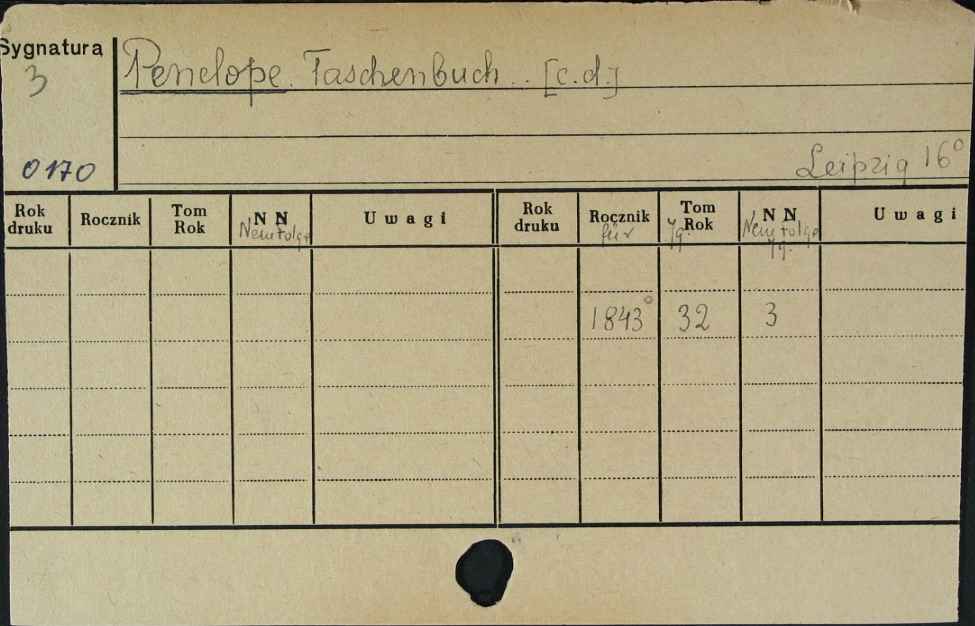 Sygnatura
3
Penelope. Taschenbuch .. [c.d.]
0170
Leipzig 16°
Rok druku Rocznik Tom Rok N N Neue Folge Uwagi Rok druku Rocznik für Tom Rok Jg. N N Neue Folge Jg. Uwagi
1843° 32 3